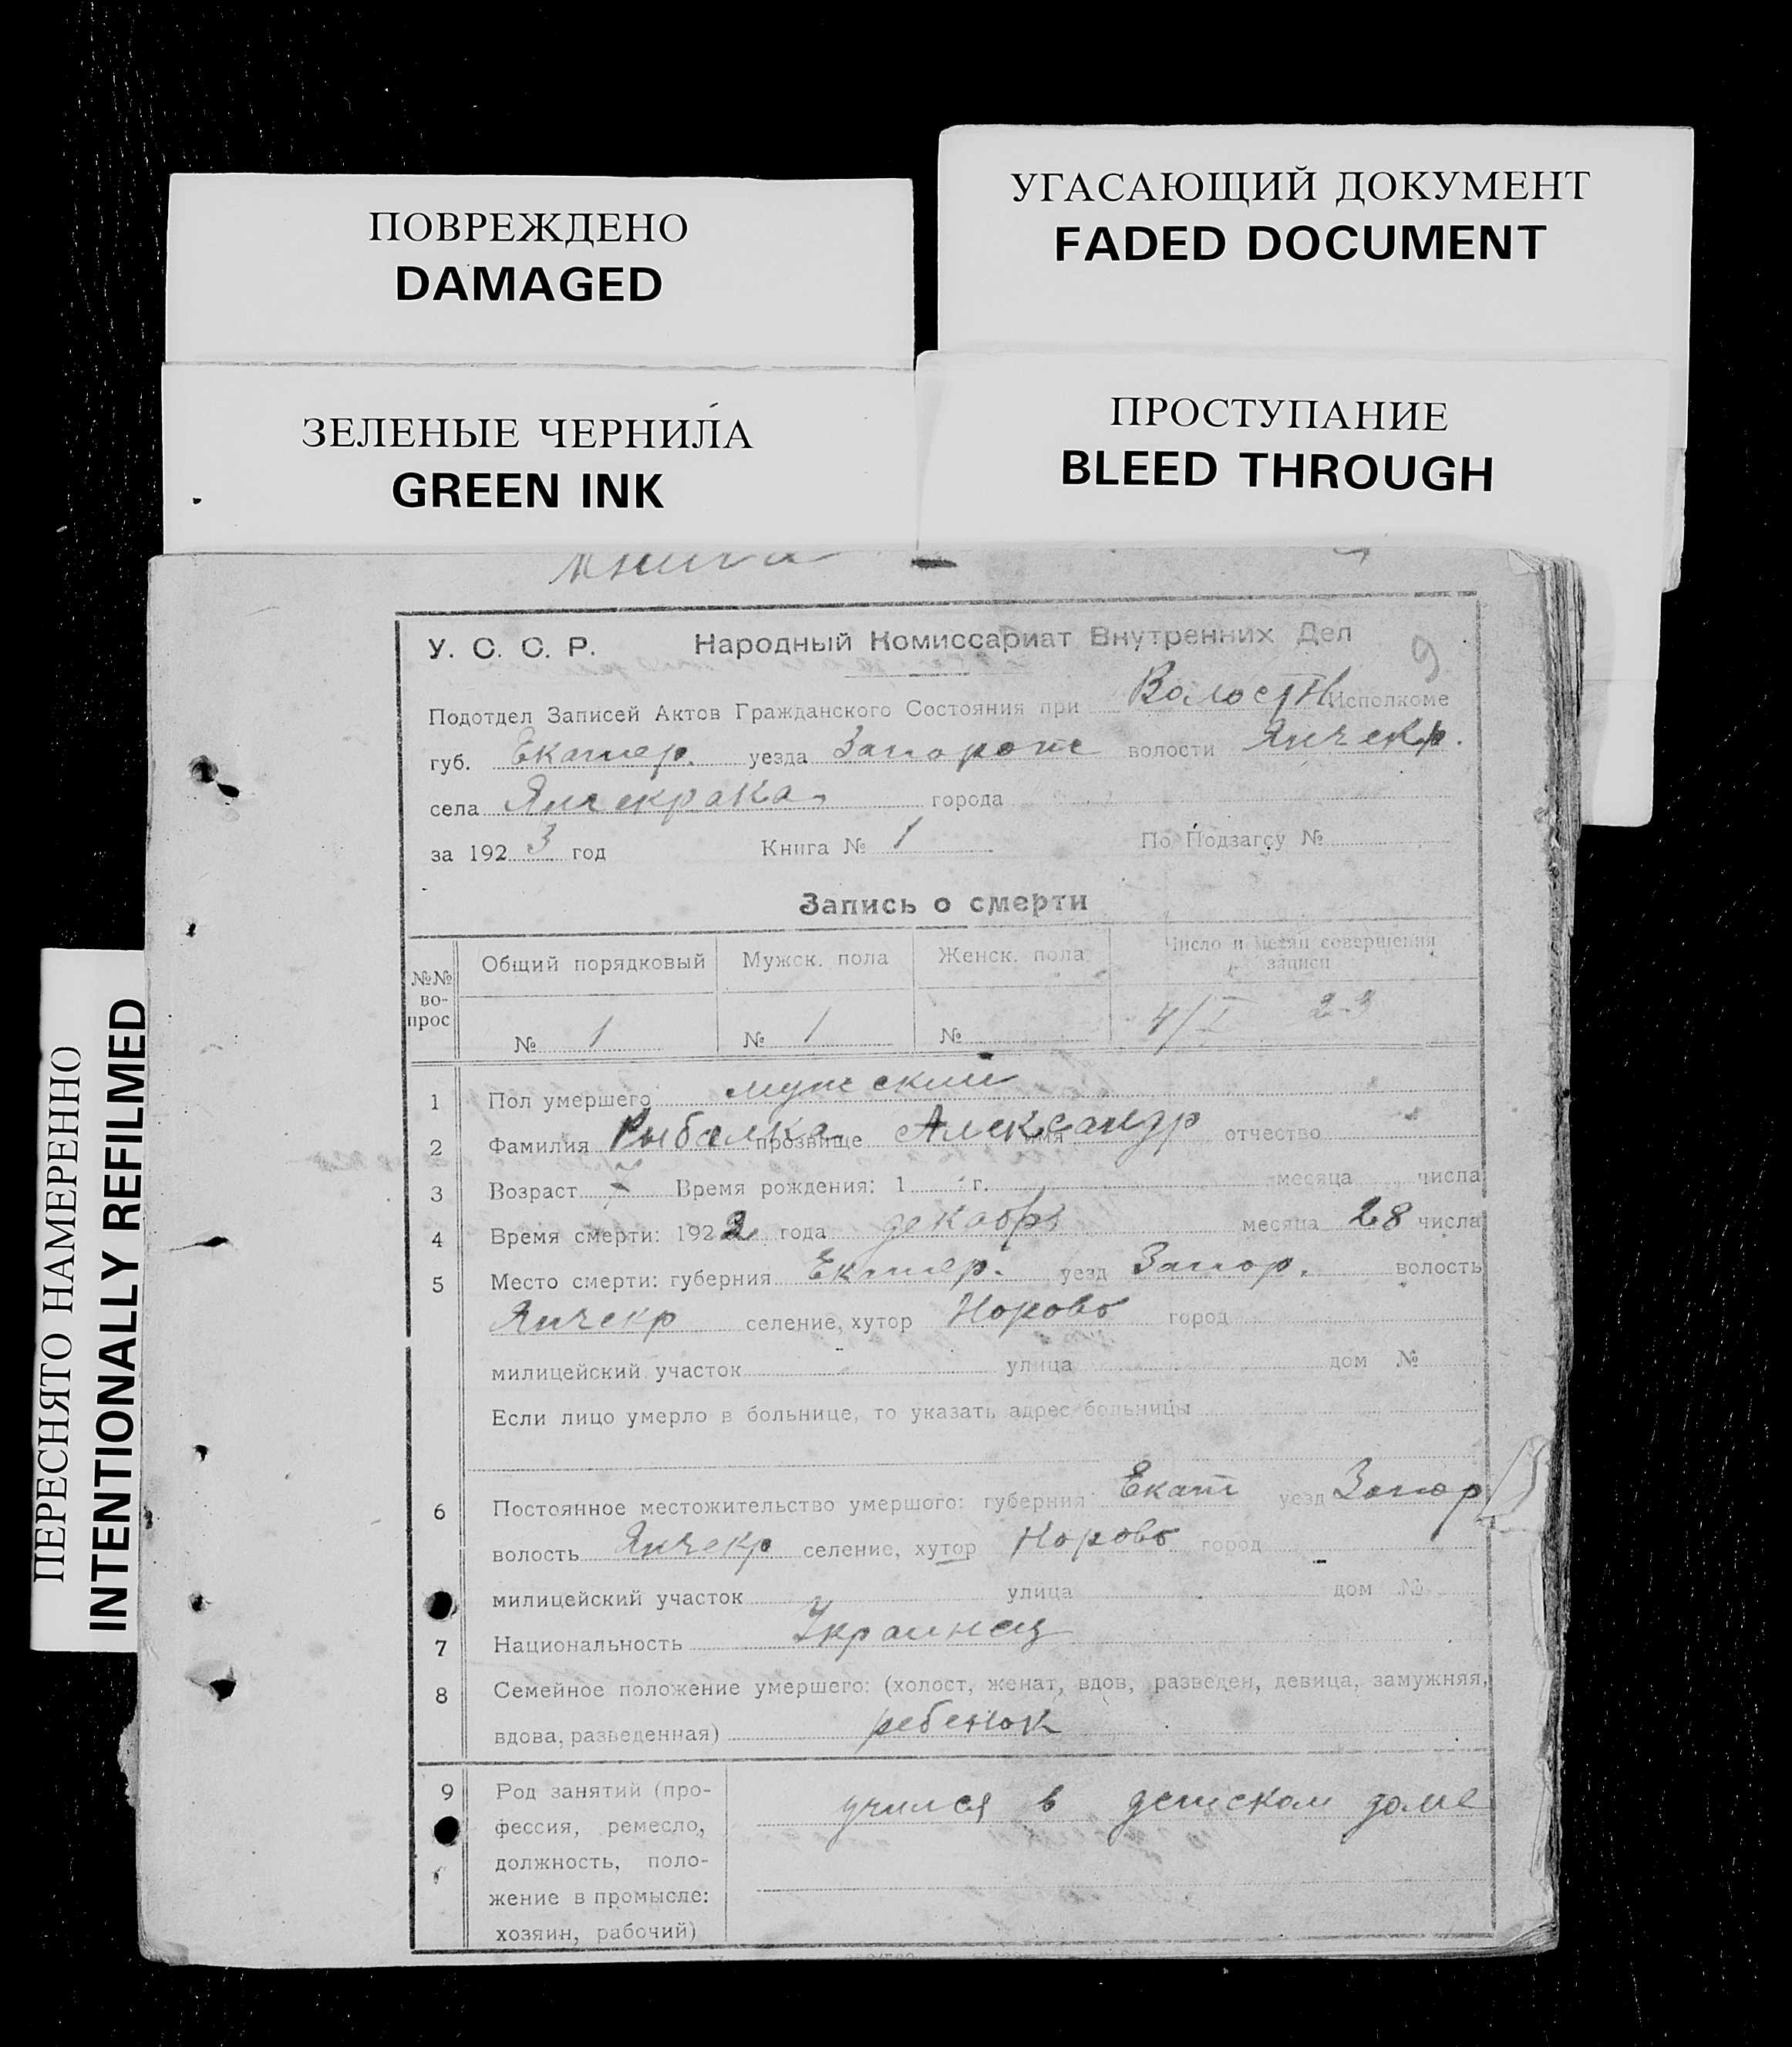 ПОВРЕЖДЕНО
DAMAGED
УГАСАЮЩИЙ ДОКУМЕНТ
FADED DOCUMENT
ЗЕЛЕНЫЕ ЧЕРНИЛА
GREEN INK
ПРОСТУПАНИЕ
BLEED THROUGH
ПЕРЕСНЯТО НАМЕРЕННО
INTENTIONALLY REFILMED
книга
9
У. С. С. Р. Народный Комиссариат Внутренних Дел
Подотдел Записей Актов Гражданского Состояния при Волостн Исполкоме
губ. Екатер. уезда Запорож волости Янчекр.
села Янчекрака города
за 1923 год Книга № 1 По Подзагсу №
Запись о смерти
№№ во-прос Общий порядковый Мужск. пола Женск. пола Число и месяц совершения записи
№ 1 № 1 № 4/I 23
1 Пол умершего мужский
2 Фамилия Рыбалка прозвище Александр имя отчество
3 Возраст 7 Время рождения: 1 г. месяца числа
4 Время смерти: 1922 года декабря месяца 28 числа
5 Место смерти: губерния Екатер. уезд Запор. волость
Янчекр селение, хутор Норово город
милицейский участок улица дом №
Если лицо умерло в больнице, то указать адрес больницы
6 Постоянное местожительство умершого: губерния Екат уезд Запор
волость Янчекр селение, хутор Норово город
милицейский участок улица дом №
7 Национальность Украинец
8 Семейное положение умершего: (холост, женат, вдов, разведен, девица, замужняя,
вдова, разведенная) ребенок
9 Род занятий (про- учился в детском доме
фессия, ремесло,
должность, поло-
жение в промысле:
хозяин, рабочий)